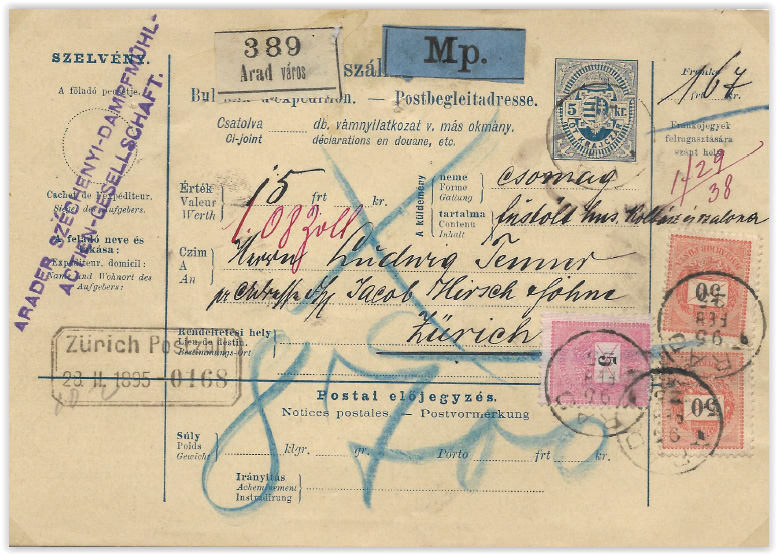 SZELVÉNY.
A föladó pecsétje.
Cachet de l'expéditeur.
Siegel des Aufgebers.
A feladó neve és lakása:
Expéditeur, domicil:
Name und Wohnort des Aufgebers:
ARADER SZÉCHENYI-DAMPFMÜHL-
ACTIEN-GESELLSCHAFT.
389
Arad város
Mp.
szál
Bul — Postbegleitadresse.
Csatolva db. vámnyilatkozat v. más okmány.
Ci-joint déclarations en douane, etc.
5 kr.
Franko
1 67
frt kr.
Frankojegyek
felragasztására
szánt hely
29
38
Érték
Valeur
Werth
15 frt kr.
1.08 Zoll
A küldemény
neme
Forme
Gattung
csomag
tartalma
Contenu
Inhalt
füstölt hus, Kolbász és szalonna
Czim
A
An
Herrn Ludwig Tenner
Jacob Hirsch Söhne
Zürich
Rendeltetési hely
Lieu de destin.
Bestimmungs-ort
Zürich
28 II. 1895 - 0168
50
50
5
ARAD
95 FEB
Postai előjegyzés.
Notices postales. — Postvormerkung
Súly
Poids
Gewicht
klgr. gr. Porto frt kr.
8700
Irányítás
Acheminement
Instradirung